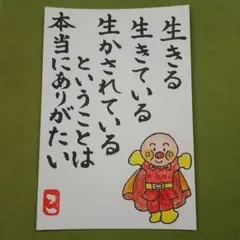 生きる
生きている
生かされている
ということは
本当にありがたい